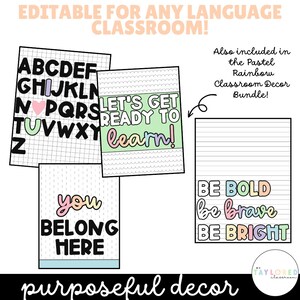 EDITABLE FOR ANY LANGUAGE
CLASSROOM!
Also included in
the Pastel
Rainbow
Classroom Decor
Bundle!
ABCDEF
GHIJKLN
N♡PQRS
TUVWXY
Z
LET'S GET
READY TO
learn!
you
BELONG
HERE
BE BOLD
be brave
BE BRIGHT
purposeful decor
TAYLORED